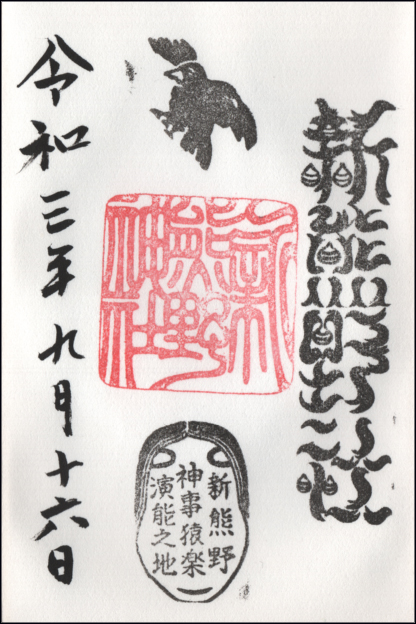 新熊野社
新熊野神社
新熊野
神事猿楽
演能之地
令和三年九月十六日